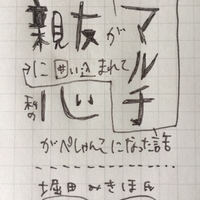 親友が
マルチ
→に囲い込まれて
私の心
がぺしゃんこになった話
堀田みきほ氏